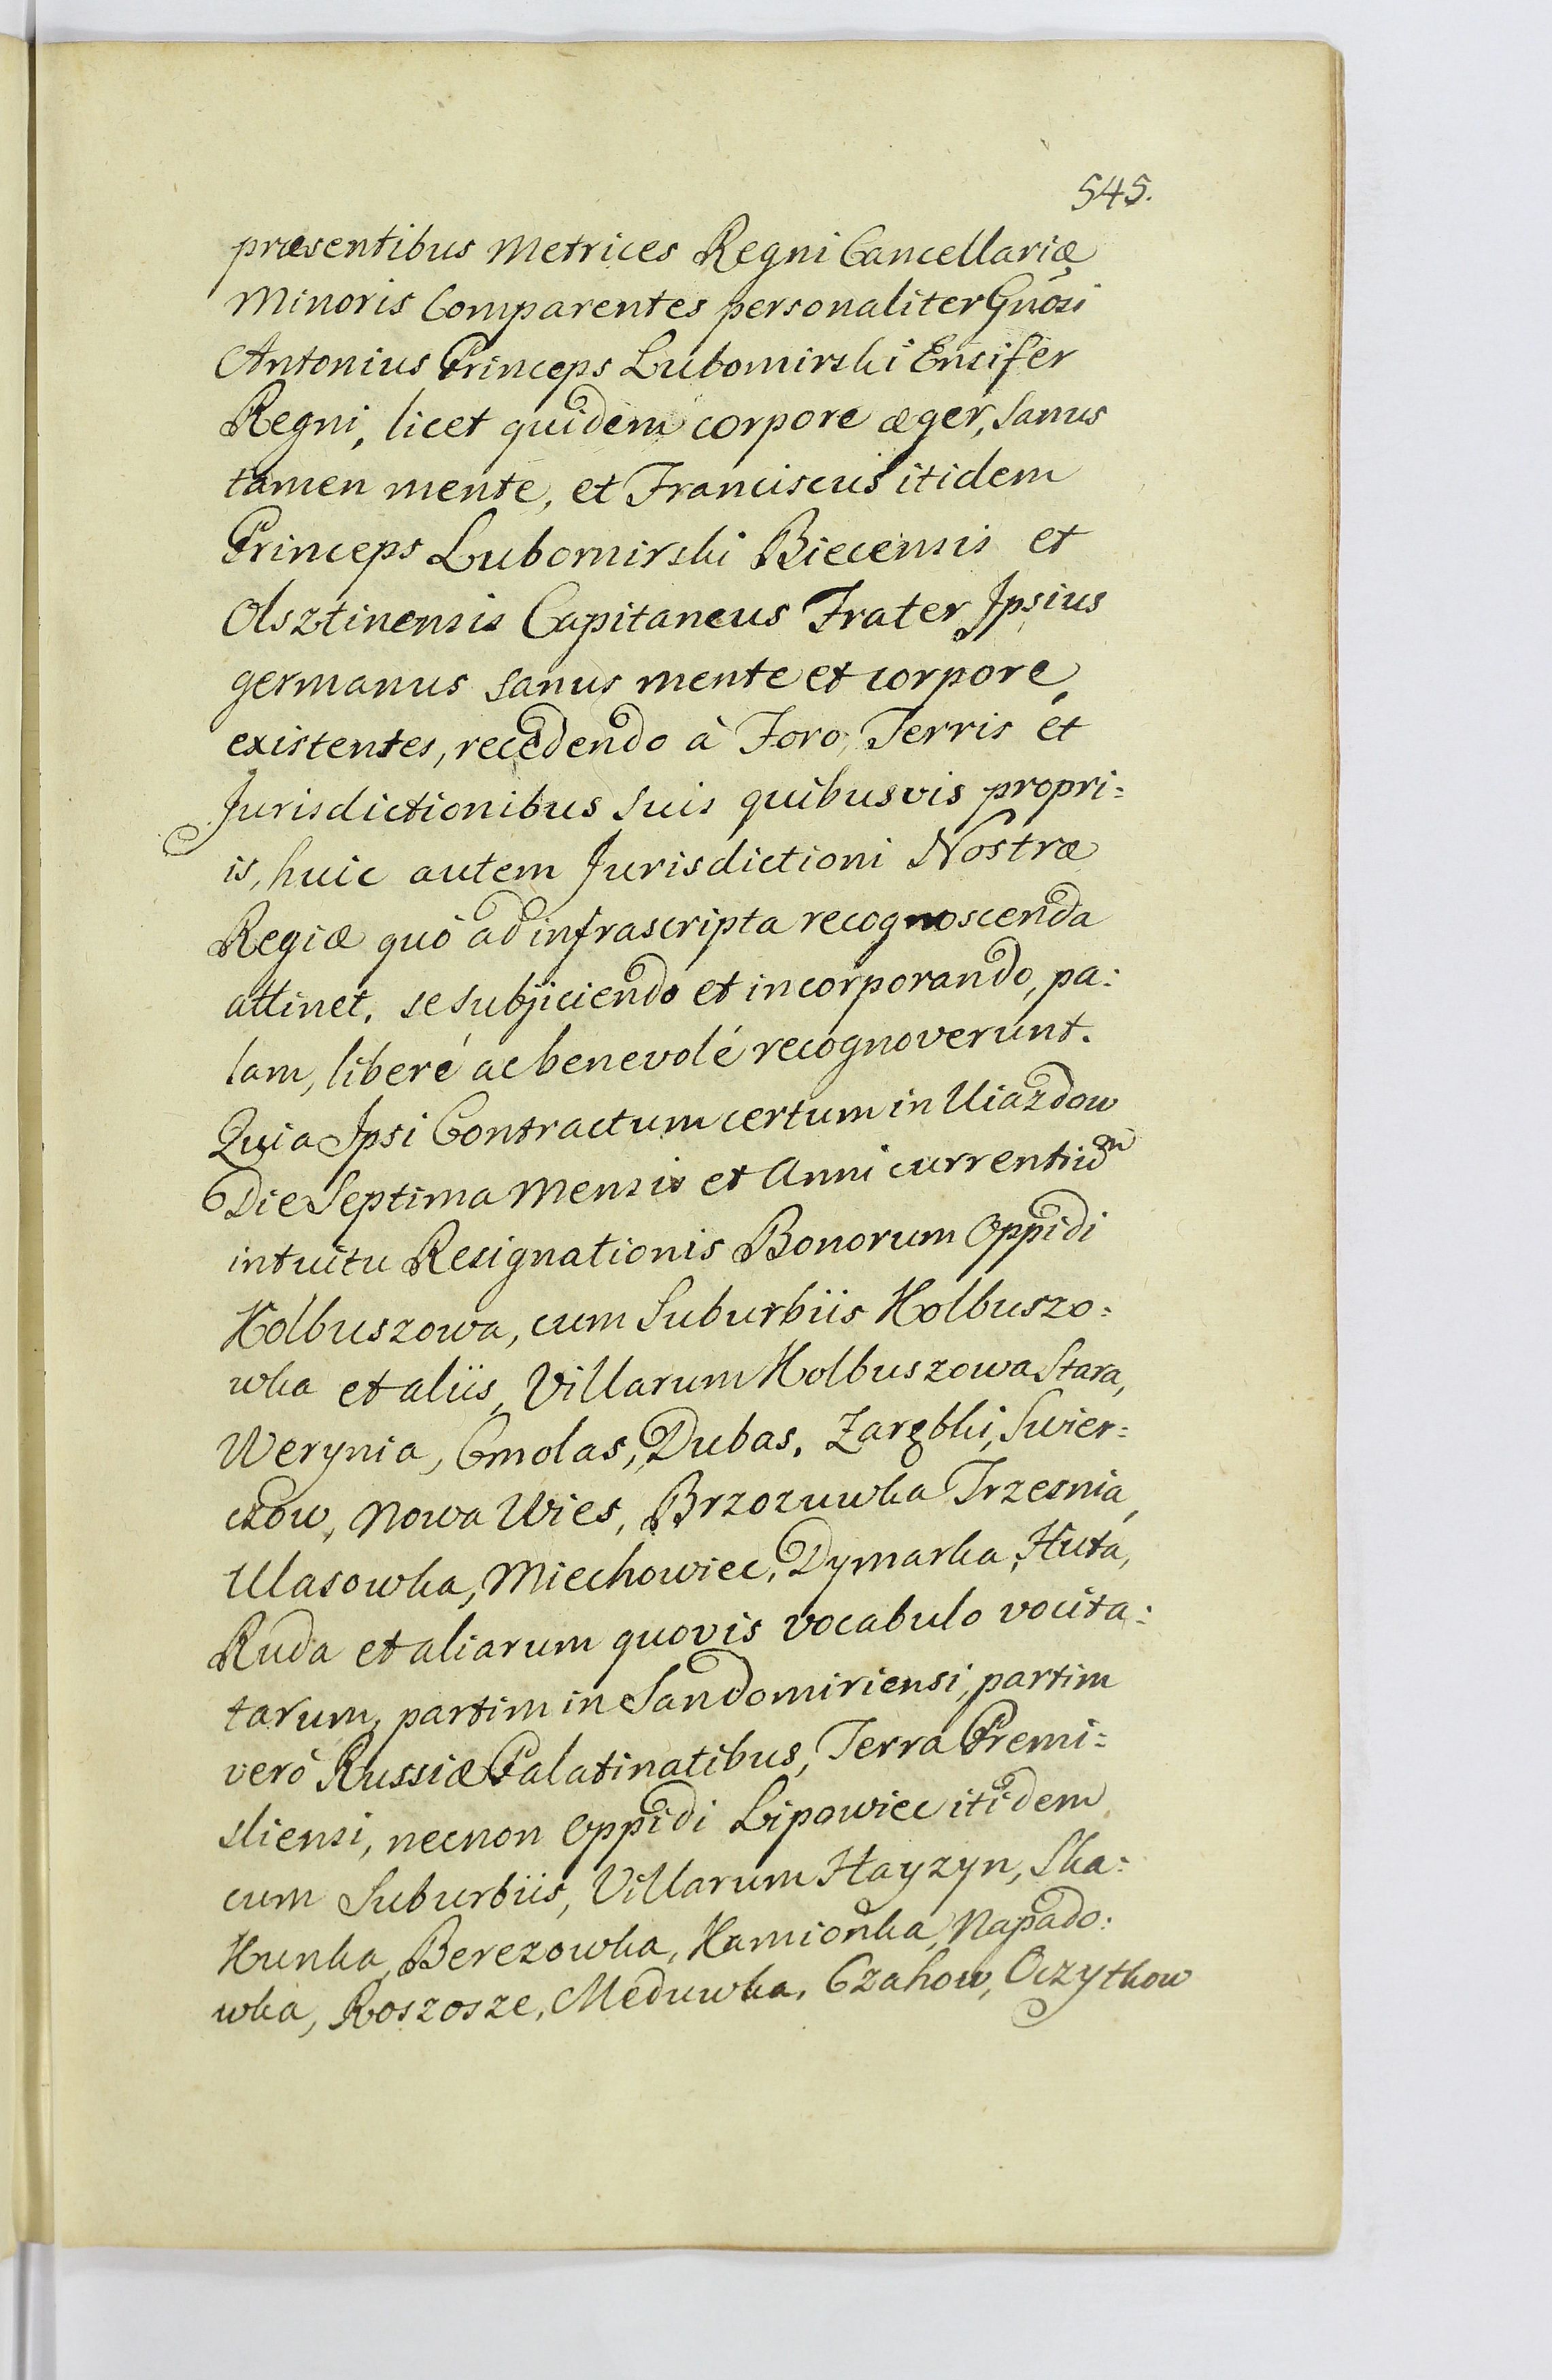 545.
præsentibus Metrices Regni Cancellariæ
Minoris Comparentes personaliter Gnosi
Antonius Princeps Lubomirski Ensifer
Regni, licet quidem corpore æger, sanus
tamen mente, et Franciscus itidem
Princeps Lubomirski Biecensis et
Olsztinensis Capitaneus Frater Ipsius
germanus sanus mente et corpore
existentes, recedendo à Foro, Terris et
Jurisdictionibus suis quibusvis propri=
is, huic autem Jurisdictioni Nostræ
Regiæ quò ad infrascripta recognoscenda
attinet, se subjiciendo et incorporando, pa=
lam, liberé ac benevolé recognoverunt.
Quia Ipsi Contractum certum in Uiazdow
Die Septima Mensis et Anni currentium
intuitu Resignationis Bonorum Oppidi
Kolbuszowa, cum Suburbiis Kolbuszo=
wka et aliis, Villarum Kolbuszowa Stara,
Werynia, Cmolas, Dubas, Zarębki, Swier=
czow, Nowa Wies, Brzozuwka Trzesnia,
Ulasowka, Miechowiec, Dymarka, Huta,
Ruda et aliarum quovis vocabulo vocita=
tarum, partim in Sandomiriensi, partim
verò Russiæ Palatinatibus, Terra Premi=
sliensi, necnon Oppidi Lipowiec itidem
cum Suburbiis, Villarum Hayzyn, Ska=
Kunka, Berezowka, Kamionka, Napado=
wka, Roszosze, Meduwka, Czahow, Oczytkow